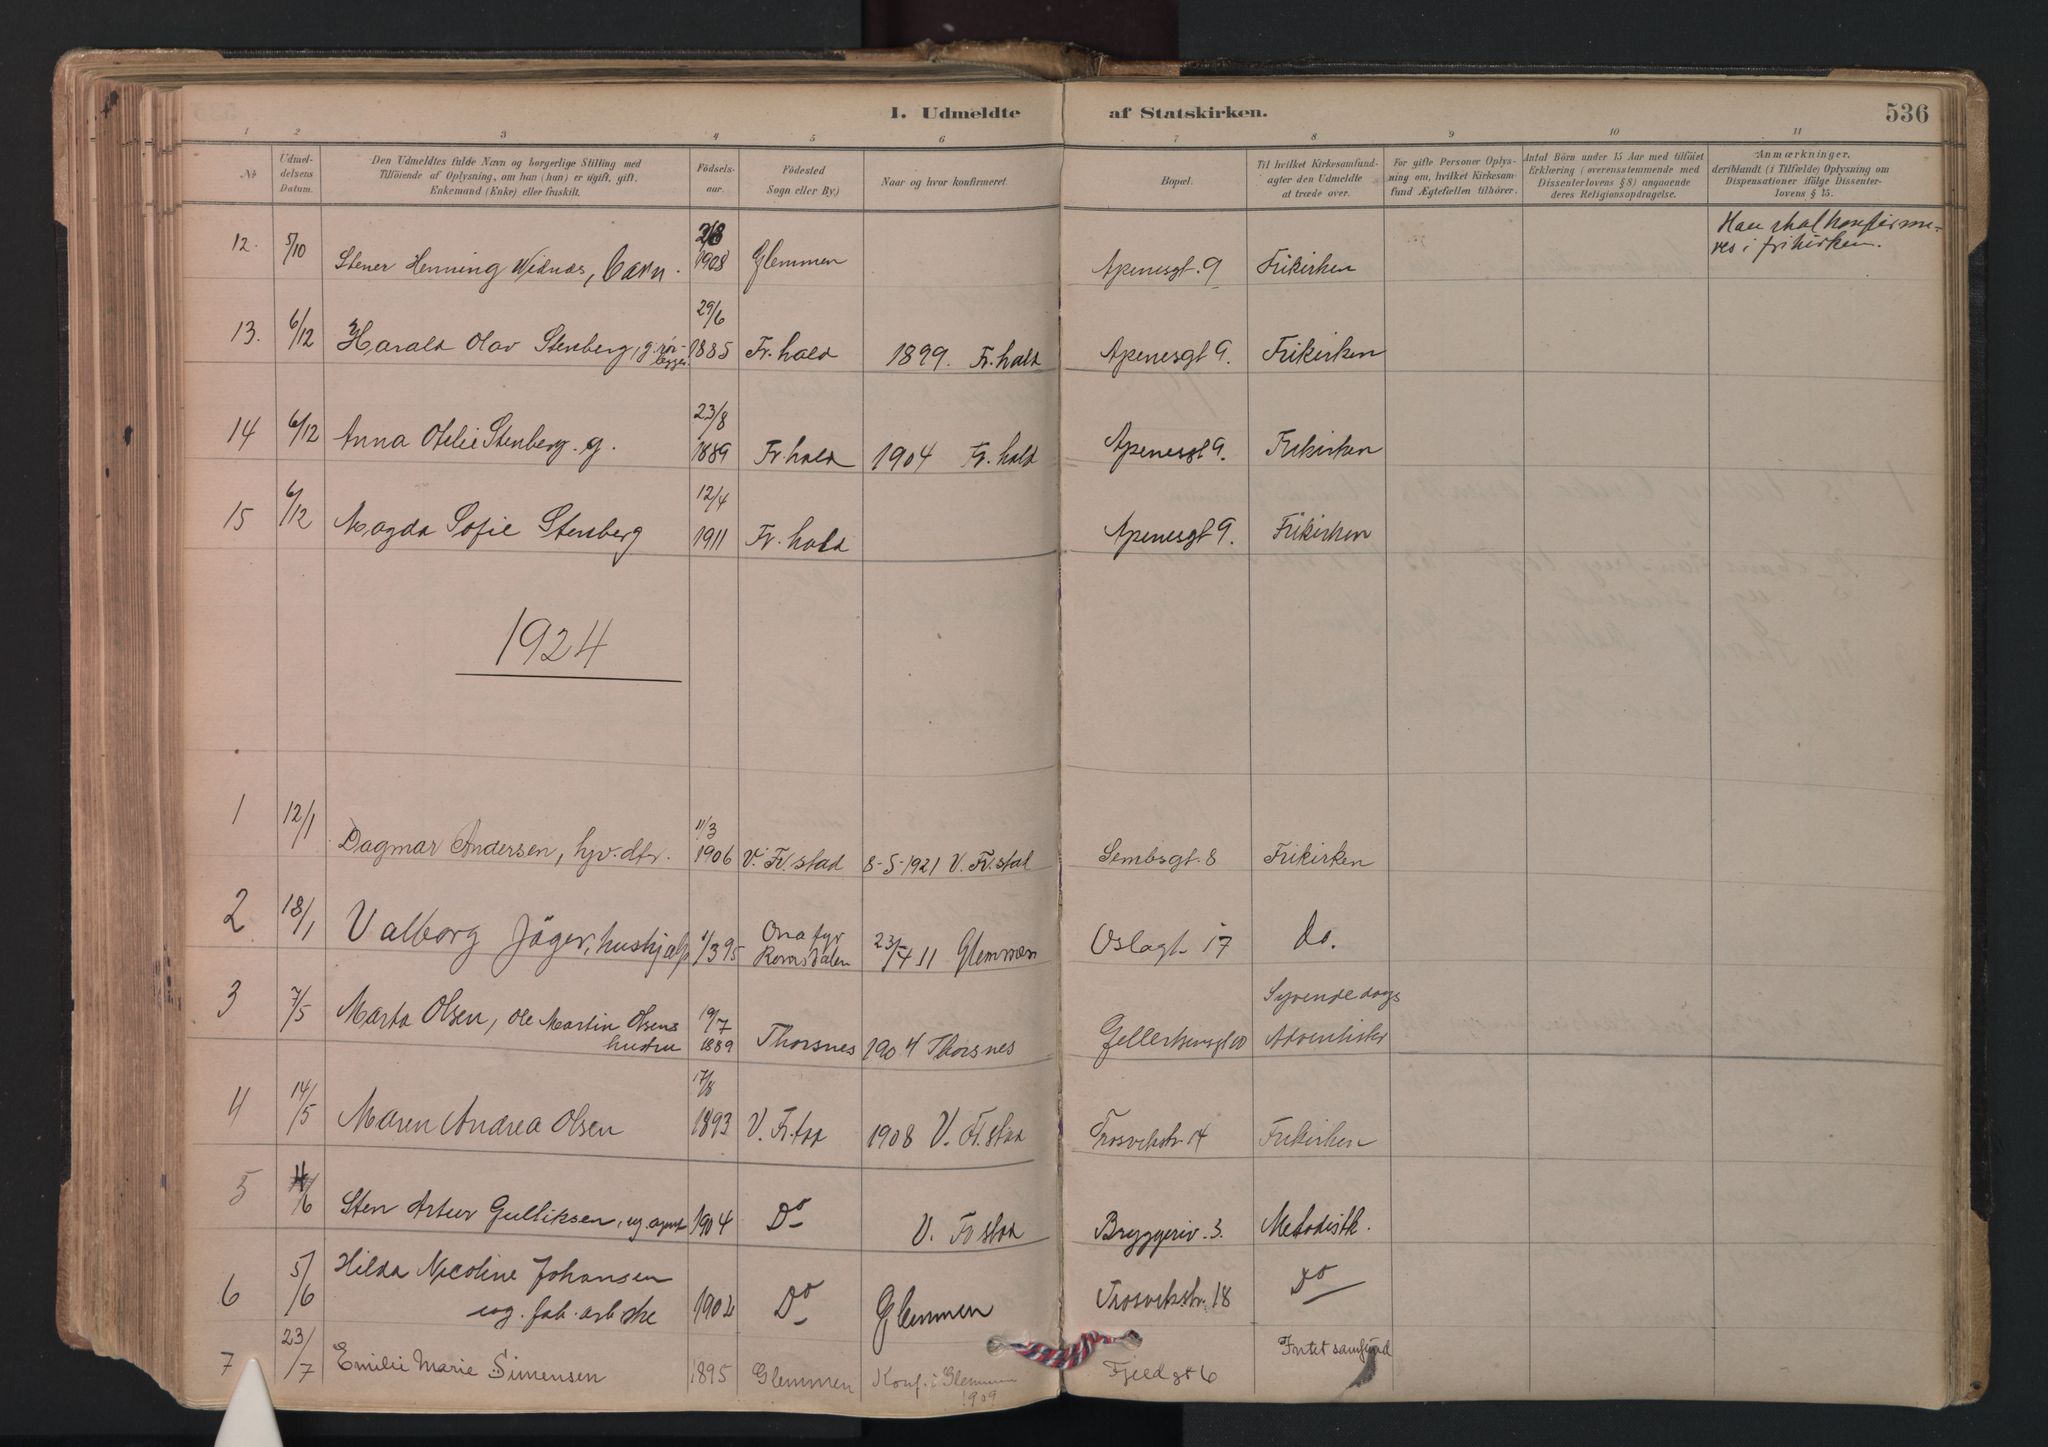 1. Udmeldte af Statskirken. 536
1 2 3 4 5 6 7 8 9 10 11
No
Udmel-
delsens
Datum.
Den Udmeldtes fulde Navn og borgerlige Stilling med
Tilföiende af Oplysning, om han (hun) er ugift, gift,
Enkemand (Enke) eller fraskilt.
Födsels-
aar.
Födested
Sogn eller By.)
Naar og hvor konfirmeret.
Bopæl.
Til hvilket Kirkesamfund-
agter den Udmeldte
at træde over.
For gifte Personer Oplys-
ning om, hvilket Kirkesam-
fund Ægtefællen tilhörer.
Antal Börn under 15 Aar med tilföiet
Erklæring (overensstemmende med
Dissenterlovens § 8) angaaende
deres Religionsopdragelse.
Anmærkninger,
deriblandt (i Tilfælde) Oplysning om
Dispensationer ifölge Dissenter-
lovens § 15.
12. 5/10 Stener Henning Widnæs, barn. 1908 Glemmen Apenesgt. 9 Frikirken
Han skal konfirme-
res i frikirken.
13. 6/12 Harald Olav Stenberg, g. rør-
legger 29/6 1885 Fr.hald 1899. Fr.hald Apenesgt 9. Frikirken
14 6/12 Anna Otilie Stenberg. g. 23/8 1889 Fr.hald 1904 Fr.hald Apenesgt 9. Frikirken
15 6/12 Magda Sofie Stenberg 12/4 1911 Fr.hald Apenesgt 9. Frikirken
1924
1 12/1 Dagmar Andersen, hjv.dtr. 11/3 1906 V. Fr.stad 8-5-1921 V. Fr.stad Sembsgt. 8 Frikirken
2 18/1 Valborg Jäger, hushjelp 1/3 95 Ona fyr
Romsdalen 23/4 11 Glemmen Oslogt. 17 Do.
3 7/5 Marta Olsen, Ole Martin Olsens
hustru 19/7 1889 Thorsnes 1904 Thorsnes Gellertsensgt 10 Syvende dags
Adventister
4 14/5 Maren Andrea Olsen 17/8 1893 V. Fr.sta 1908 V. Fr.stad Trosvikstr. 14 Frikirken
5 4/6 Sten Artur Gulliksen, ug. agent 1904 Do V. Fr stad Bryggeriv. 3. Metodistk.
6 5/6 Hilda Nicoline Johansen
ug. fab. arb.ske 1902 Do Glemmen Trosvikstr. 18 Do
7 23/7 Emilie Marie Simensen 1895 Glemmen Konf. i Glemmen
1909 Fjeldgt 6 Intet samfund